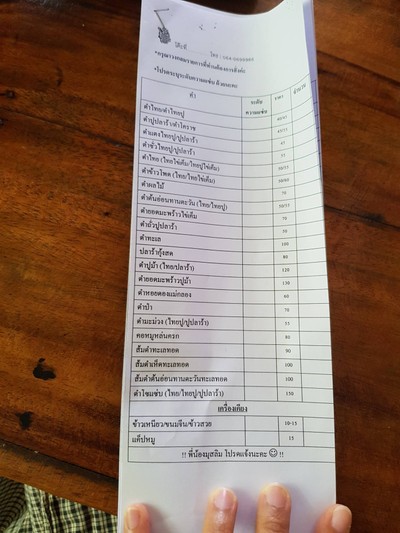 โต๊ะที่ ............ โทร :
*กรุณาวงกลมรายการที่ท่านต้องการสั่งค่ะ
*โปรดระบุระดับความเผ็ด ด้วยนะคะ
ตำ ระดับความเผ็ด ราคา จำนวน
ตำไทย/ตำไทยปู
ตำปูปลาร้า/ตำโคราช
ตำแตงไทยปู/ปูปลาร้า 45
ตำซั่วไทยปู/ปูปลาร้า 55
ตำไทย (ไทยไข่เค็ม/ไทยปูไข่เค็ม)
ตำข้าวโพด (ไทย/ไทยไข่เค็ม)
ตำผลไม้ 70
ตำต้นอ่อนทานตะวัน (ไทย/ไทยปู) 50/55
ตำยอดมะพร้าวไข่เค็ม 70
ตำถั่วปูปลาร้า 50
ตำทะเล 100
ปลาร้ากุ้งสด 80
ตำปูม้า (ไทย/ปลาร้า) 120
ตำยอดมะพร้าวปูม้า 130
ตำหอยดองแม่กลอง 60
ตำป่า 70
ตำมะม่วง (ไทยปู/ปูปลาร้า) 55
คอหมูหล่นครก 80
ส้มตำทะเลทอด 90
ส้มตำเห็ดทะเลทอด 100
ส้มตำต้นอ่อนทานตะวันทะเลทอด 100
ตำโซแซ่บ (ไทย/ไทยปู/ปูปลาร้า) 150
เครื่องเคียง
ข้าวเหนียว/ขนมจีน/ข้าวสวย 10-15
แค๊ปหมู 15
!! พี่น้องมุสลิม โปรดแจ้งนะคะ ☺ !!